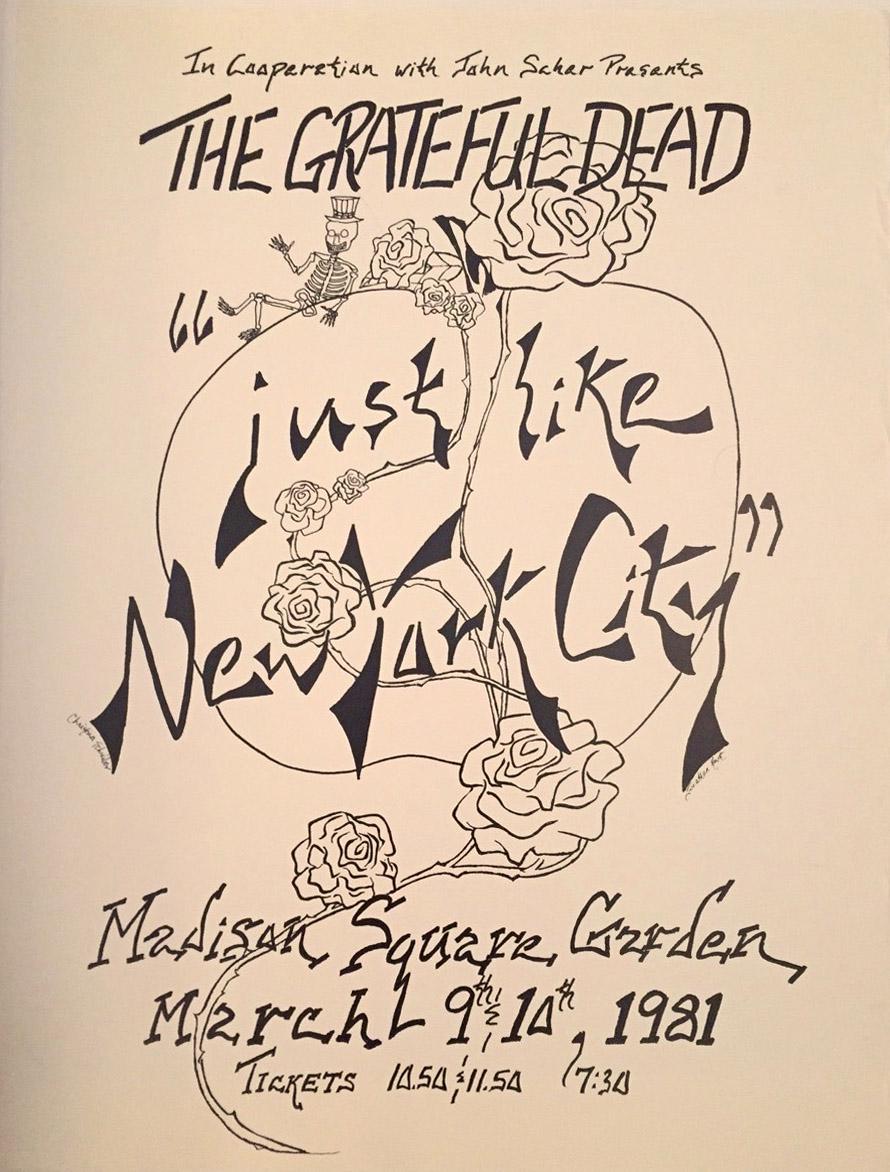 In Cooperation with John Scher Presents
THE GRATEFUL DEAD
“just like
New York City”
Madison Square Garden,
March 9th & 10th, 1981
TICKETS 10.50 & 11.50 7:30